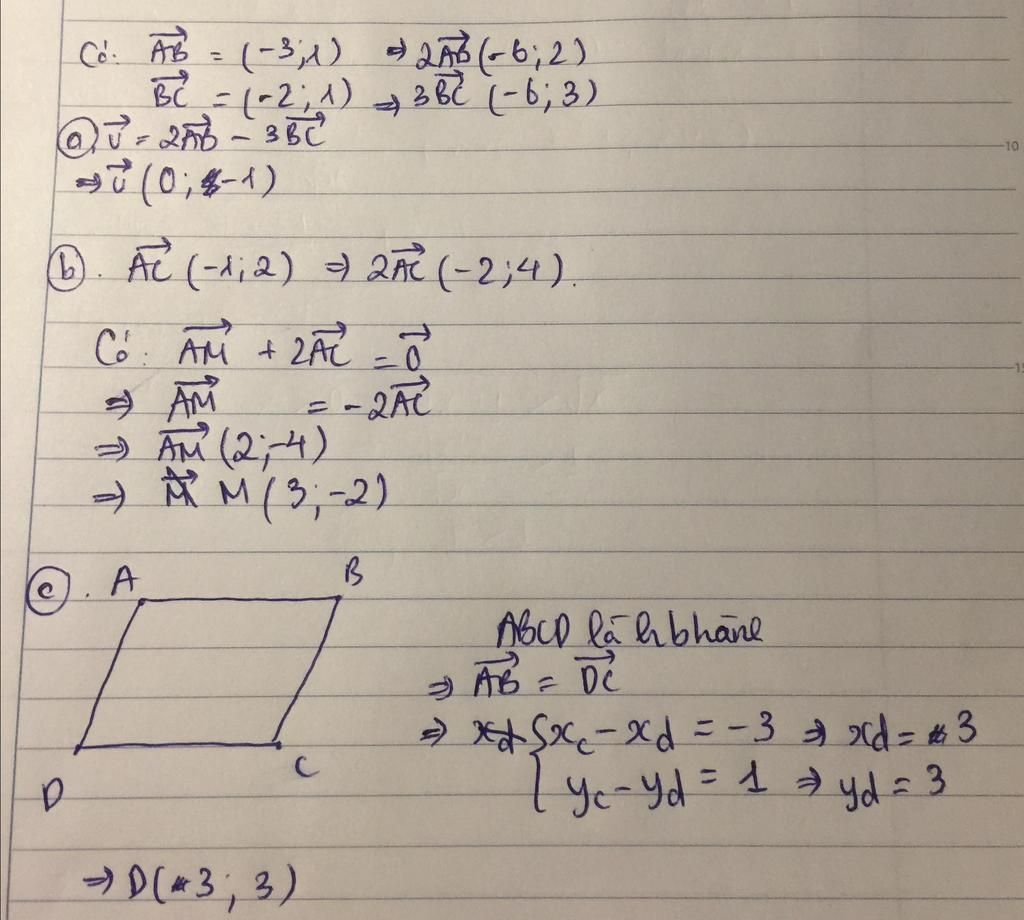 Có: $\overrightarrow{AB}$ = (-3;1) ⇒ 2$\overrightarrow{AB}$(-6;2)
$\overrightarrow{BC}$ = (-2;1) ⇒ 3$\overrightarrow{BC}$ (-6;3)
ⓐ $\vec{u}$ = 2$\overrightarrow{AB}$ - 3$\overrightarrow{BC}$
⇒ $\vec{u}$ (0; -1)
10
ⓑ. $\overrightarrow{AC}$ (-1;2) ⇒ 2$\overrightarrow{AC}$ (-2;4).
Có: $\overrightarrow{AM}$ + 2$\overrightarrow{AC}$ = $\vec{0}$
⇒ $\overrightarrow{AM}$ = -2$\overrightarrow{AC}$
⇒ $\overrightarrow{AM}$ (2;-4)
⇒ M (3;-2)
ⓒ. A B
ABCD là hbhành
⇒ $\overrightarrow{AB}$ = $\overrightarrow{DC}$
⇒ { x_c - x_d = -3 ⇒ x_d = 3
y_c - y_d = 1 ⇒ y_d = 3
D C
⇒ D(3; 3)